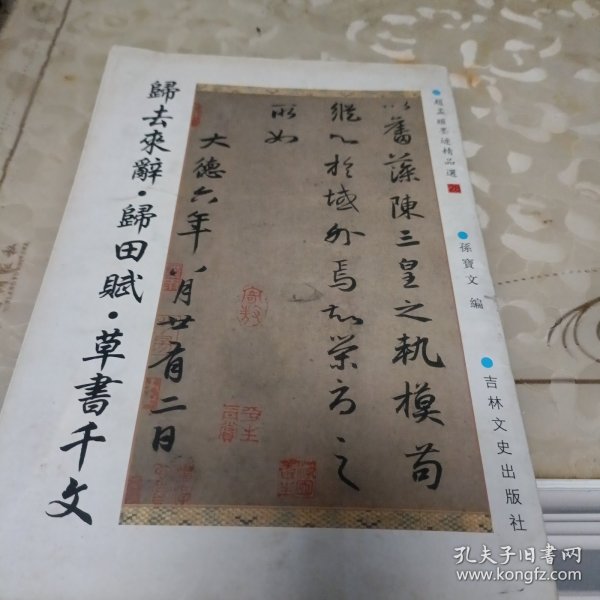 歸去來辭·歸田賦·草書千文
趙孟頫墨迹精品選
孫寶文 編
吉林文史出版社
以奮藻陳三皇之軌模苟
縱心於域外焉知榮辱之
所如
大德六年八月廿有二日
孔夫子旧书网
www.kongfz.com